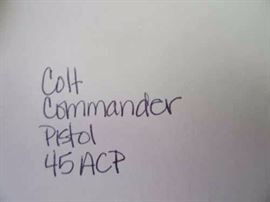 Colt
Commander
Pistol
45 ACP